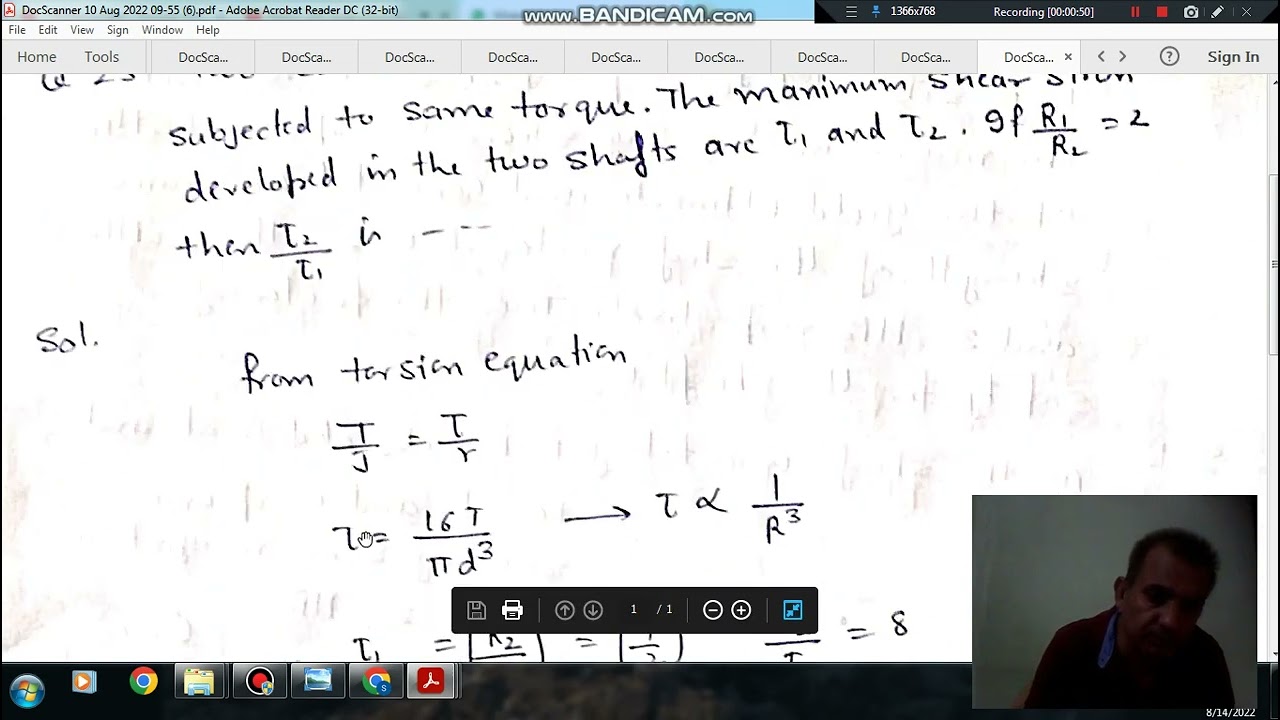 DocScanner 10 Aug 2022 09-55 (6).pdf - Adobe Acrobat Reader DC (32-bit)
www.BANDICAM.com
1366x768
Recording [00:00:50]
File Edit View Sign Window Help
Home Tools DocSca... DocSca... DocSca... DocSca... DocSca... DocSca... DocSca... DocSca... DocSca... × Sign In
Q 23
subjected to same torque. The maximum shear
developed in the two shafts are τ1 and τ2. If R1/R2 = 2
then τ2/τ1 is ----
Sol.
from torsion equation
T/J = τ/r
τ = 16T/πd³ → τ ∝ 1/R³
1 / 1
τ1 = R2 = 1/2 = 8
8/14/2022